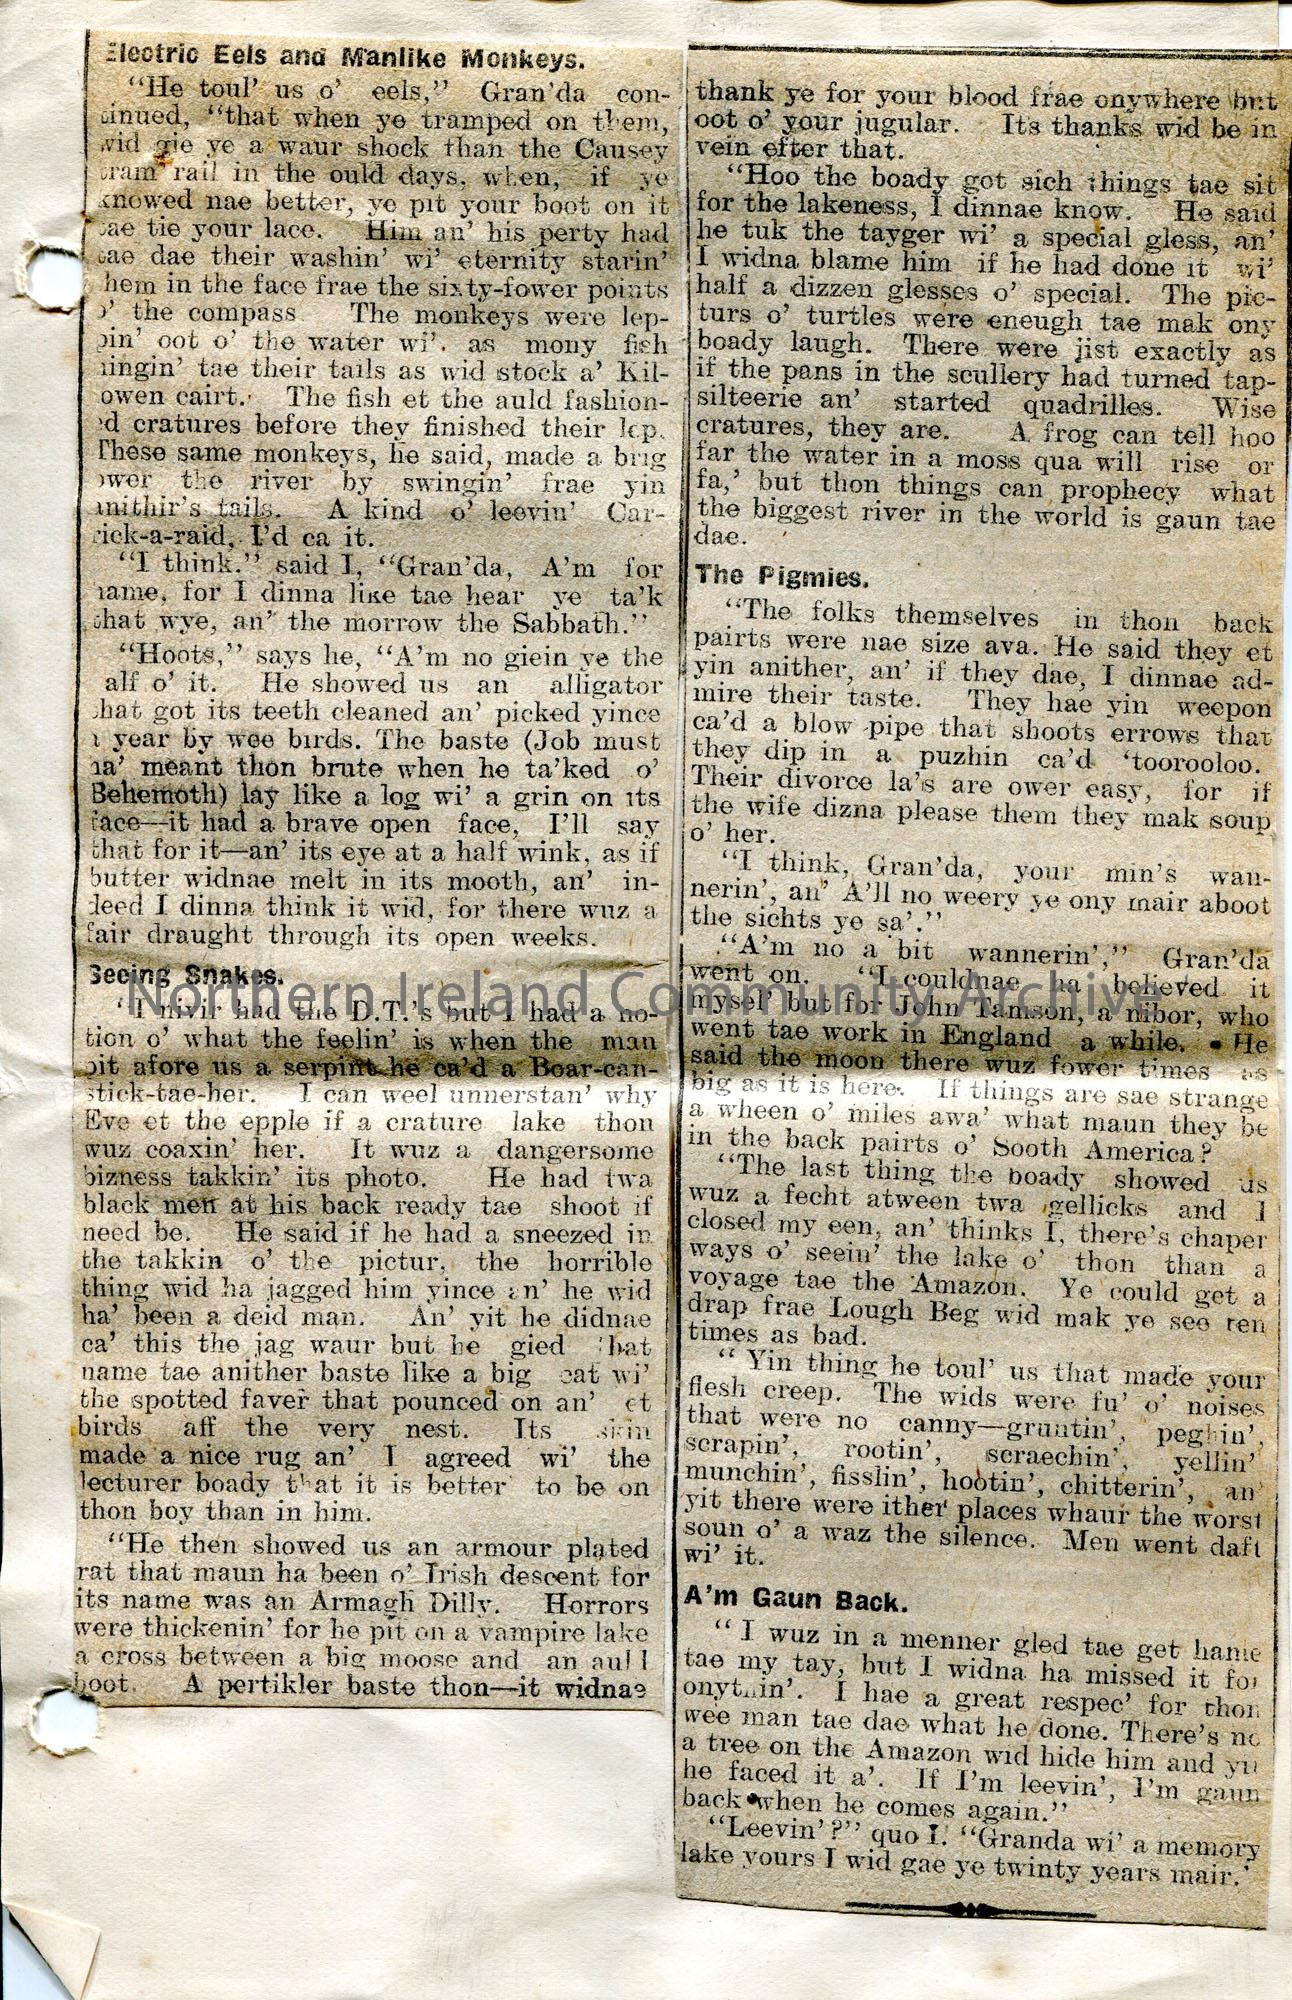 Electric Eels and Manlike Monkeys.
"He toul' us o' eels," Gran'da con-
tinued, "that when ye tramped on them,
wid gie ye a waur shock than the Causey
tram rail in the ould days, when, if ye
knowed nae better, ye pit your boot on it
tae tie your lace. Him an' his perty had
tae dae their washin' wi' eternity starin'
them in the face frae the sixty-fower points
o' the compass The monkeys were lep-
pin' oot o' the water wi'. as mony fish
hingin' tae their tails as wid stock a' Kil-
owen cairt. The fish et the auld fashion-
ed cratures before they finished their lep.
These same monkeys, he said, made a brig
ower the river by swingin' frae yin
anithir's tails. A kind o' leevin' Car-
rick-a-raid, I'd ca it.
"I think." said I, "Gran'da, A'm for
hame, for I dinna like tae hear ye ta'k
that wye, an' the morrow the Sabbath."
"Hoots," says he, "A'm no giein ye the
alf o' it. He showed us an alligator
that got its teeth cleaned an' picked yince
a year by wee birds. The baste (Job must
ha' meant thon brute when he ta'ked o'
Behemoth) lay like a log wi' a grin on its
face—it had a brave open face, I'll say
that for it—an' its eye at a half wink, as if
butter widnae melt in its mooth, an' in-
deed I dinna think it wid, for there wuz a
fair draught through its open weeks.
Seeing Snakes.
"I nivir had the D.T.'s but I had a no-
tion o' what the feelin' is when the man
pit afore us a serpint he ca'd a Boar-can-
stick-tae-her. I can weel unnerstan' why
Eve et the epple if a crature lake thon
wuz coaxin' her. It wuz a dangersome
bizness takkin' its photo. He had twa
black men at his back ready tae shoot if
need be. He said if he had a sneezed in
the takkin o' the pictur, the horrible
thing wid ha jagged him yince an' he wid
ha' been a deid man. An' yit he didnae
ca' this the jag waur but he gied that
name tae anither baste like a big cat wi'
the spotted faver that pounced on an' et
birds aff the very nest. Its skin
made a nice rug an' I agreed wi' the
lecturer boady that it is better to be on
thon boy than in him.
"He then showed us an armour plated
rat that maun ha been o' Irish descent for
its name was an Armagh Dilly. Horrors
were thickenin' for he pit on a vampire lake
a cross between a big moose and an auld
boot. A pertikler baste thon—it widnae
thank ye for your blood frae onywhere but
oot o' your jugular. Its thanks wid be in
vein efter that.
"Hoo the boady got sich things tae sit
for the lakeness, I dinnae know. He said
he tuk the tayger wi' a special gless, an'
I widna blame him if he had done it wi'
half a dizzen glesses o' special. The pic-
turs o' turtles were eneugh tae mak ony
boady laugh. There were jist exactly as
if the pans in the scullery had turned tap-
silteerie an' started quadrilles. Wise
cratures, they are. A frog can tell hoo
far the water in a moss qua will rise or
fa,' but thon things can prophecy what
the biggest river in the world is gaun tae
dae.
The Pigmies.
"The folks themselves in thon back
pairts were nae size ava. He said they et
yin anither, an' if they dae, I dinnae ad-
mire their taste. They hae yin weepon
ca'd a blow pipe that shoots errows that
they dip in a puzhin ca'd 'toorooloo.
Their divorce la's are ower easy, for if
the wife dizna please them they mak soup
o' her.
"I think, Gran'da, your min's wan-
nerin', an' A'll no weery ye ony mair aboot
the sichts ye sa'."
"A'm no a bit wannerin'," Gran'da
went on. "I couldnae ha believed it
mysel' but for John Tamson, a nibor, who
went tae work in England a while. He
said the moon there wuz fower times as
big as it is here. If things are sae strange
a wheen o' miles awa' what maun they be
in the back pairts o' Sooth America?
"The last thing the boady showed us
wuz a fecht atween twa gellicks and I
closed my een, an' thinks I, there's chaper
ways o' seein' the lake o' thon than a
voyage tae the Amazon. Ye could get a
drap frae Lough Beg wid mak ye see ten
times as bad.
"Yin thing he toul' us that made your
flesh creep. The wids were fu' o' noises
that were no canny—gruntin', peghin',
scrapin', rootin', scraechin', yellin'
munchin', fisslin', hootin', chitterin', an'
yit there were ither places whaur the worst
soun o' a waz the silence. Men went daft
wi' it.
A'm Gaun Back.
"I wuz in a menner gled tae get hame
tae my tay, but I widna ha missed it for
onythin'. I hae a great respec' for thon
wee man tae dae what he done. There's no
a tree on the Amazon wid hide him and yit
he faced it a'. If I'm leevin', I'm gaun
back when he comes again."
"Leevin'?" quo I. "Granda wi' a memory
lake yours I wid gae ye twinty years mair.'
Northern Ireland Community Archive